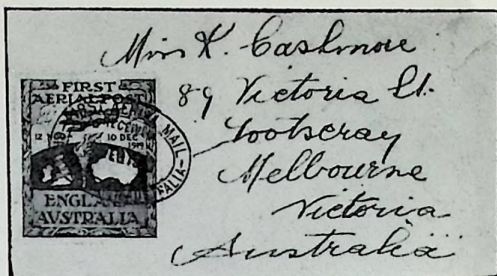 Miss K. Cashmore
89 Victoria St.
Footscray
Melbourne
Victoria
Australia
FIRST
AERIAL POST
12 NOV
10 DEC
1919
ENGLAND
AUSTRALIA
FIRST AERIAL MAIL
RECEIVED